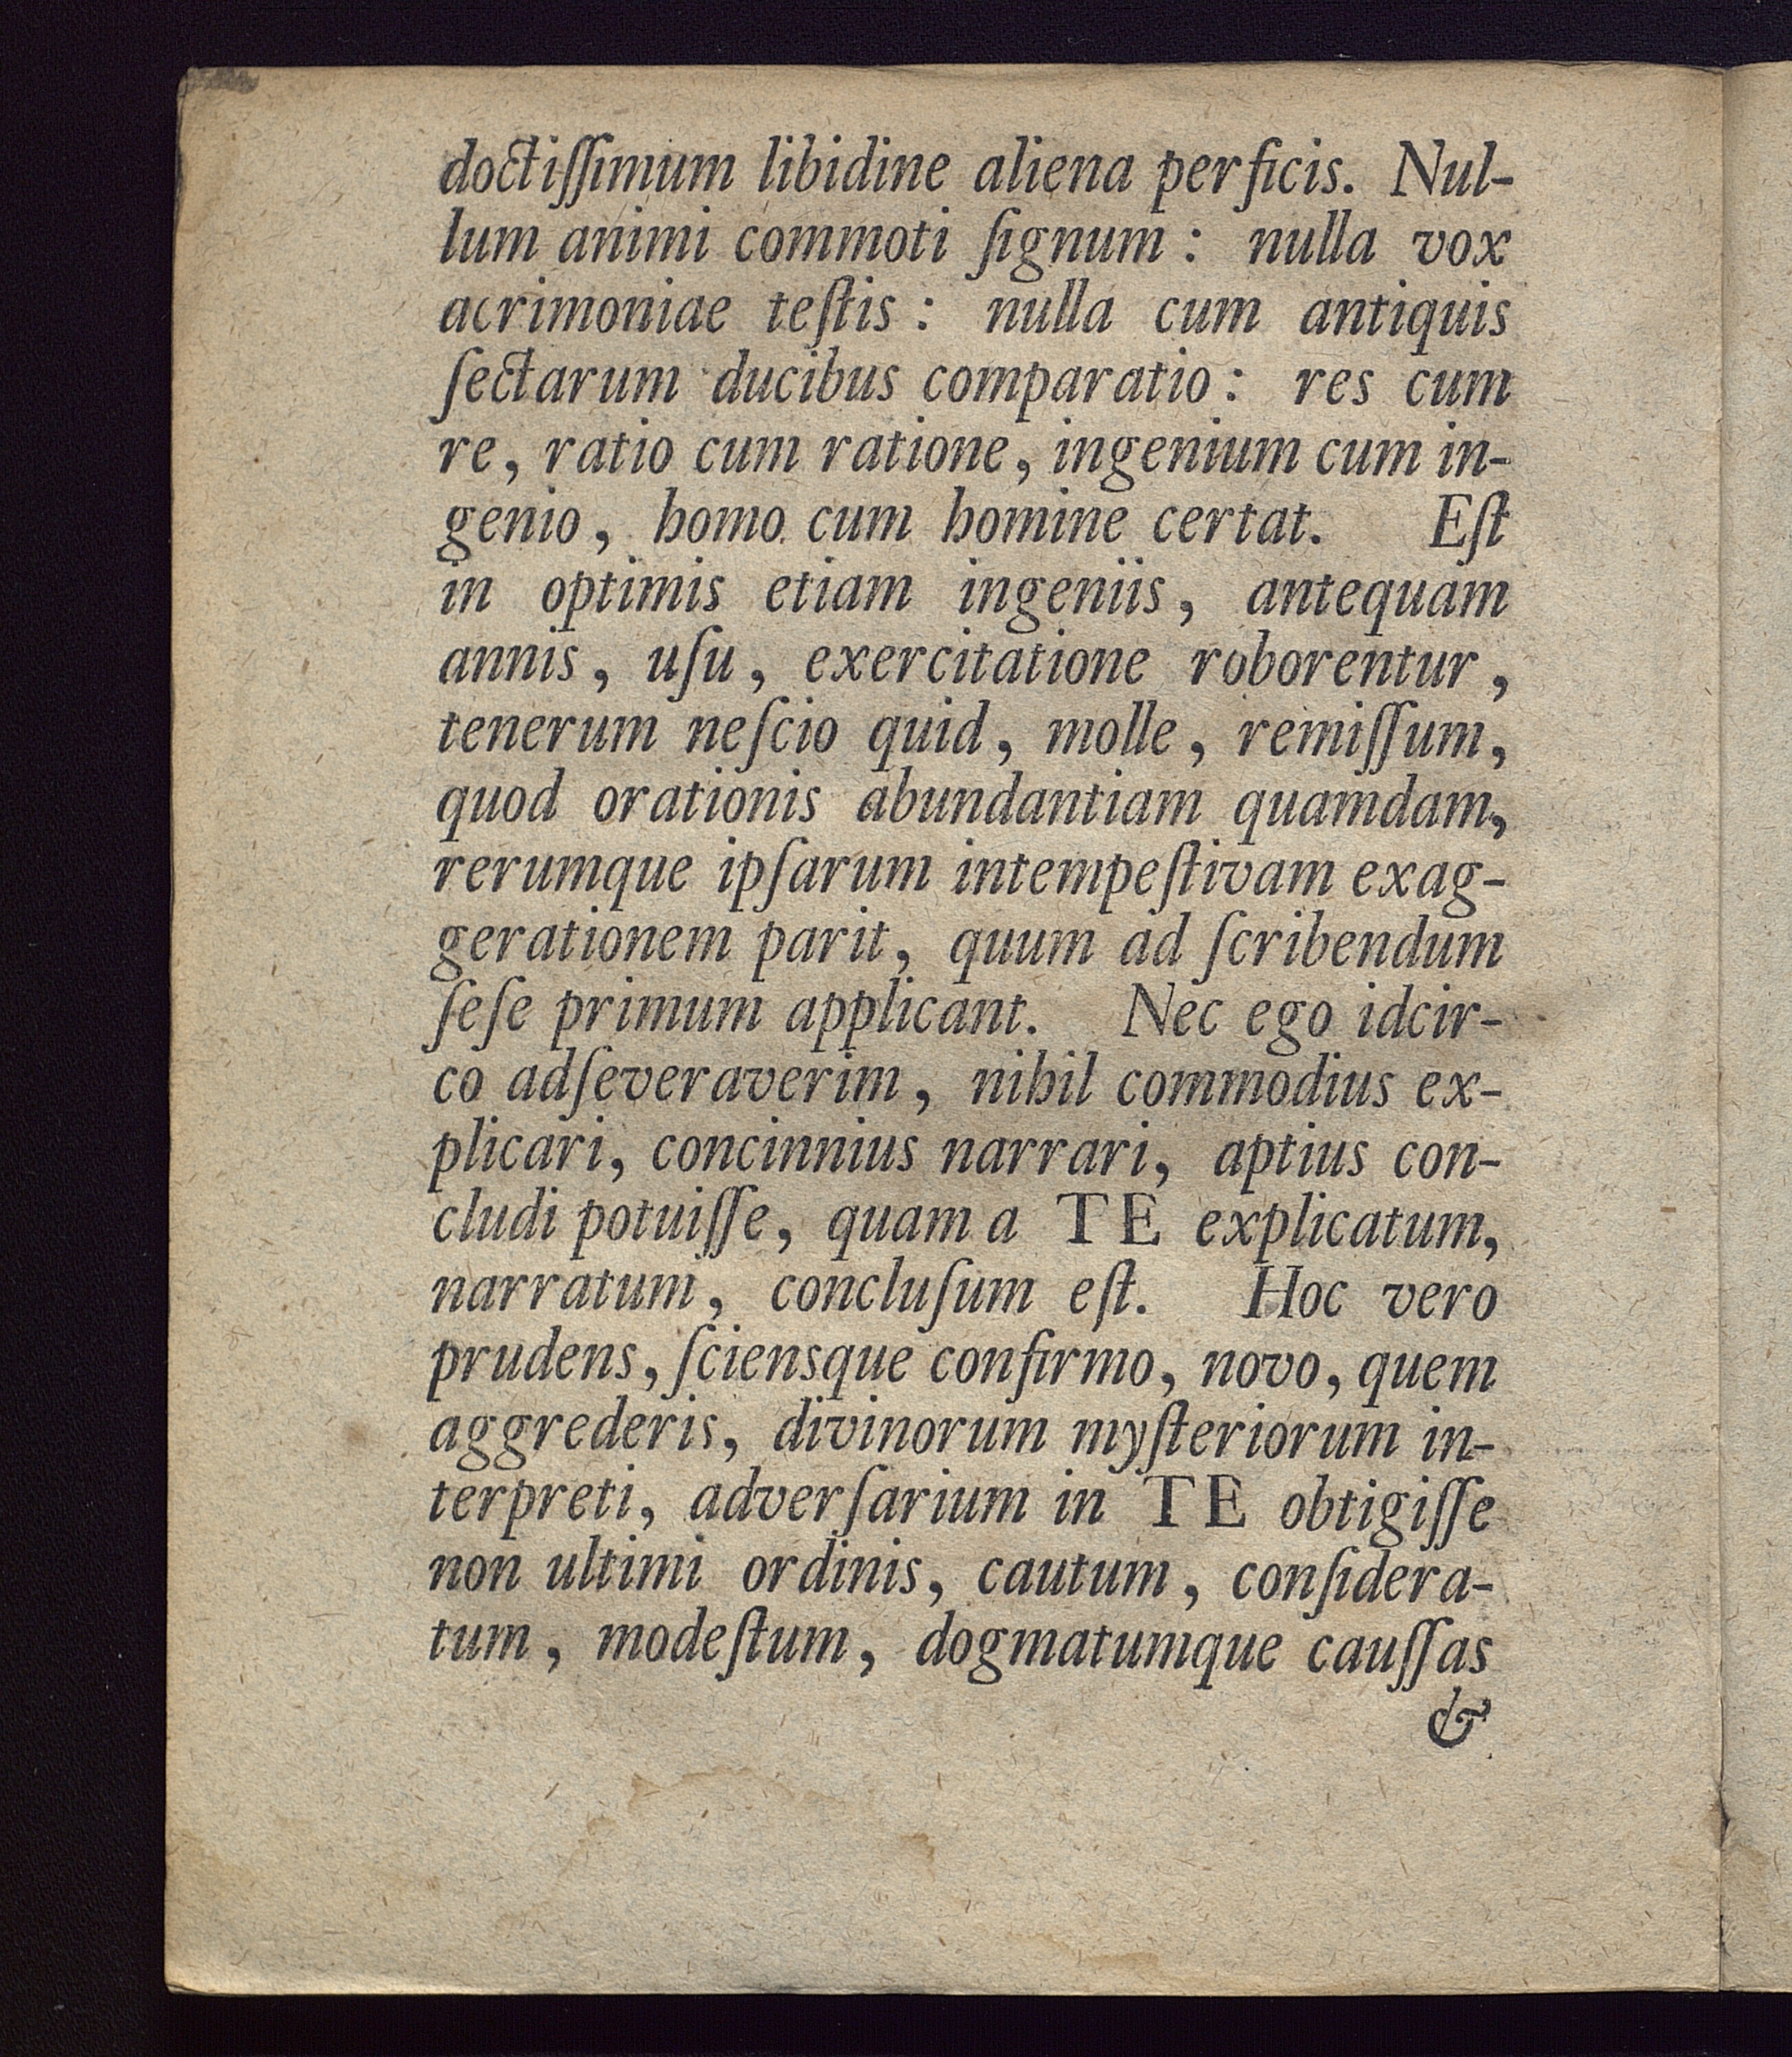 doctiſſimum libidine aliena perficis. Nul-
lum animi commoti ſignum: nulla vox
acrimoniae teſtis: nulla cum antiquis
ſectarum ducibus comparatio: res cum
re, ratio cum ratione, ingenium cum in-
genio, homo cum homine certat. Eſt
in optimis etiam ingeniis, antequam
annis, uſu, exercitatione roborentur,
tenerum neſcio quid, molle, remiſſum,
quod orationis abundantiam quamdam,
rerumque ipſarum intempeſtivam exag-
gerationem parit, quum ad ſcribendum
ſeſe primum applicant. Nec ego idcir-
co adſeveraverim, nihil commodius ex-
plicari, concinnius narrari, aptius con-
cludi potuiſſe, quam a TE explicatum,
narratum, concluſum eſt. Hoc vero
prudens, ſciensque confirmo, novo, quem
aggrederis, divinorum myſteriorum in-
terpreti, adverſarium in TE obtigiſſe
non ultimi ordinis, cautum, conſidera-
tum, modeſtum, dogmatumque cauſſas
&